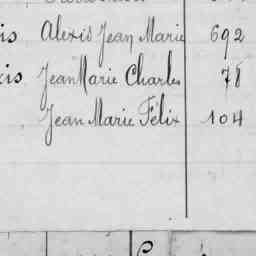 is Alexis Jean Marie 692
is Jean Marie Charles 78
Jean Marie Félix 104